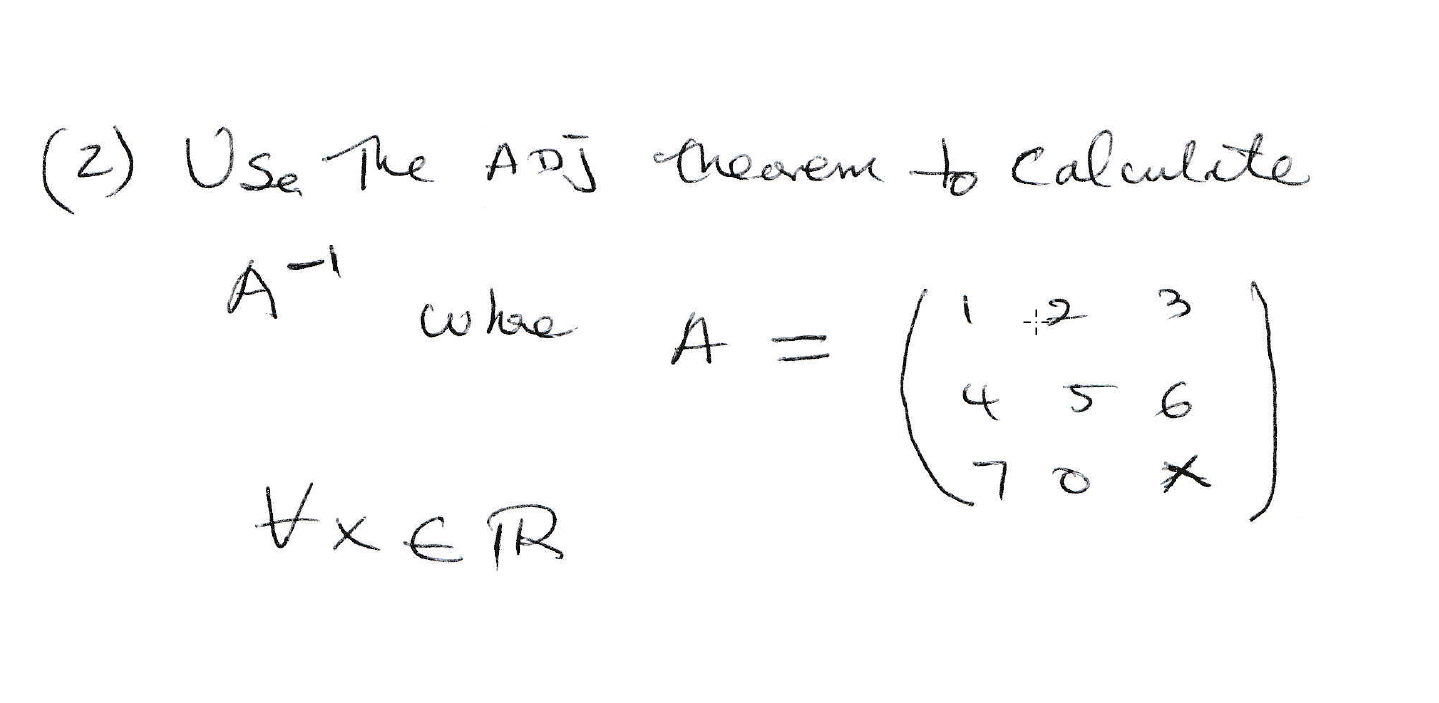 (2) Use The ADJ theorem to Calculate
A⁻¹ where A = ( 1 2 3
4 5 6
7 0 x )
∀x ∈ ℝ